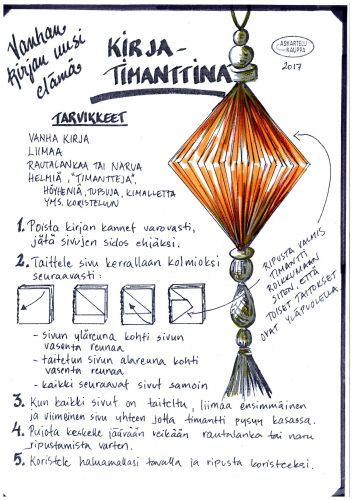 Vanhan
kirjan uusi
elämä
KIRJA-
TIMANTTINA
ASKARTELU
KAUPPA
2017
TARVIKKEET
VANHA KIRJA
LIIMAA
RAUTALANKAA TAI NARUA
HELMIÄ, "TIMANTTEJA",
HÖYHENIÄ, TUPSUJA, KIMALLETTA
YMS. KORISTELUUN
1. Poista kirjan kannet varovasti,
jätä sivujen sidos ehjäksi.
2. Taittele sivu kerrallaan kolmioksi
seuraavasti:
- sivun yläreuna kohti sivun
vasenta reunaa
- taitetun sivun alareuna kohti
vasenta reunaa
- kaikki seuraavat sivut samoin
RIPUSTA VALMIS
TIMANTTI
ROIKKUMAAN
SITEN, ETTÄ
TOISET TAITOKSET
OVAT YLÄPUOLELLA.
3. Kun kaikki sivut on taiteltu, liimaa ensimmäinen
ja viimeinen sivu yhteen jotta timantti pysyy kasassa.
4. Pujota keskelle jäävään reikään rautalanka tai naru
ripustamista varten.
5. Koristele haluamallasi tavalla ja ripusta koristeeksi.